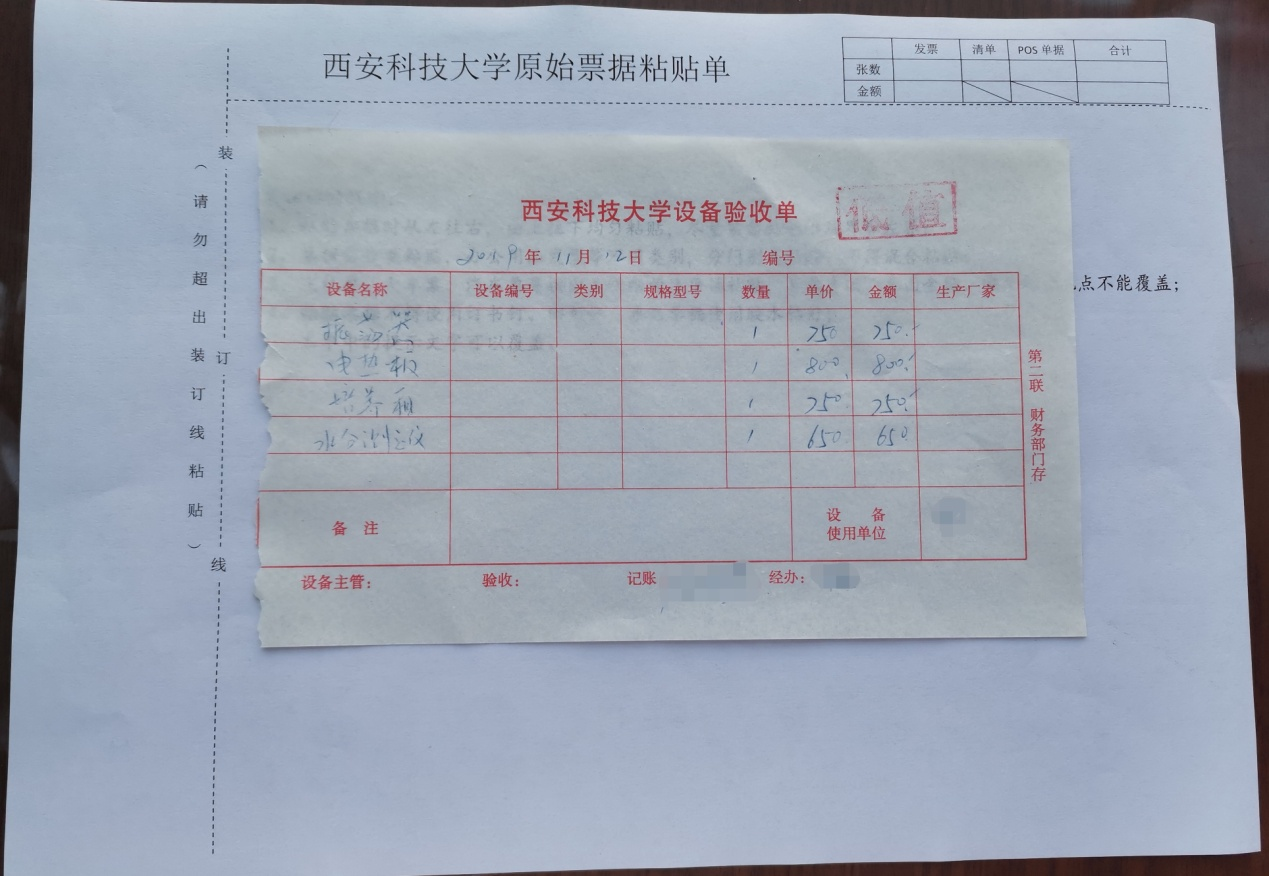 西安科技大学原始票据粘贴单
发票 清单 POS 单据 合计
张数
金额
装 订 线
（请勿超出装订线粘贴）
点不能覆盖；
西安科技大学设备验收单
低值
2019年 11月 12日 编号
设备名称 设备编号 类别 规格型号 数量 单价 金额 生产厂家
振荡器 1 750 750.
电热板 1 800 800.
培养箱 1 750 750.
水分测定仪 1 650 650.
备 注
设 备
使用单位
第二联 财务部门存
设备主管： 验收： 记账 经办：